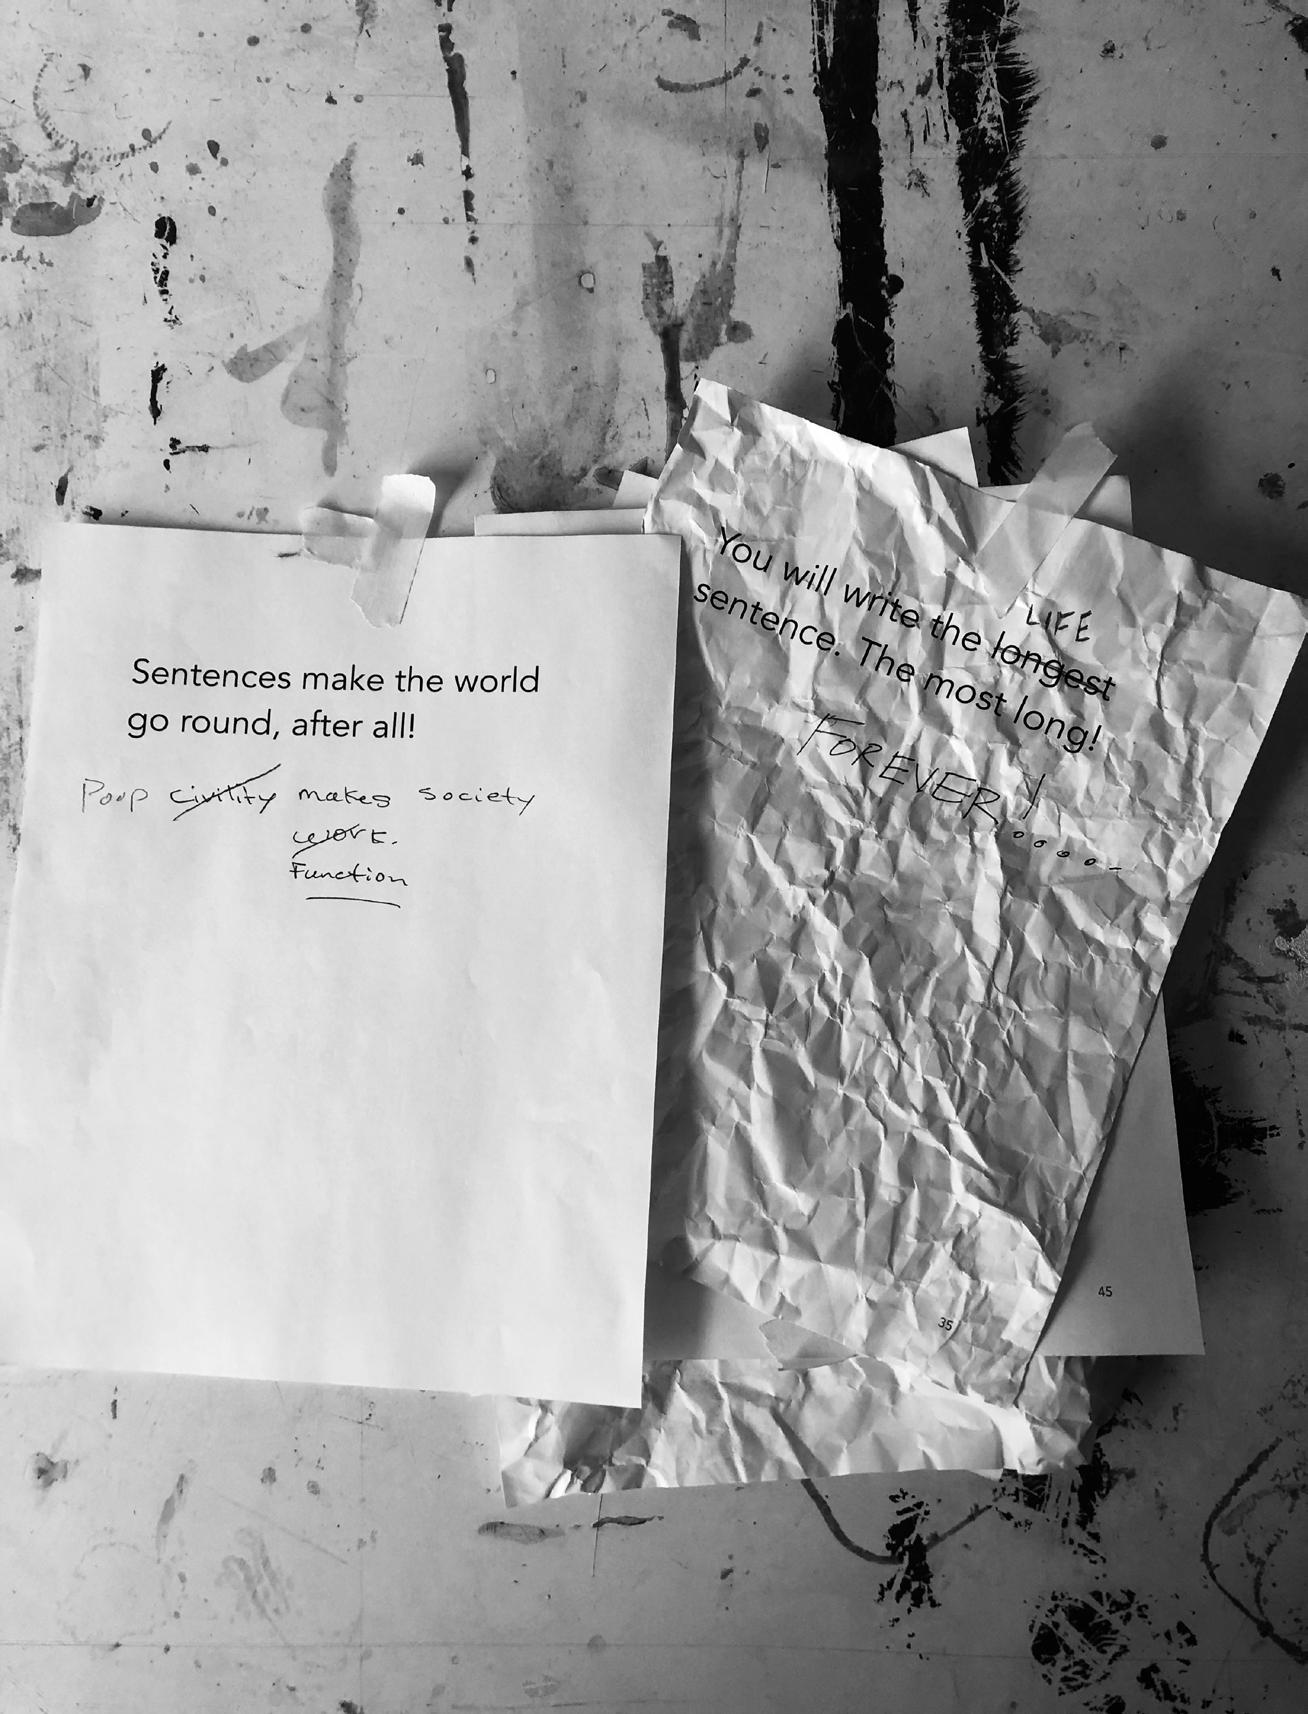 Sentences make the world
go round, after all!
Poop civility makes society
work.
Function
You will write the longest
LIFE
sentence. The most long!
FOREVER!.....
35
45